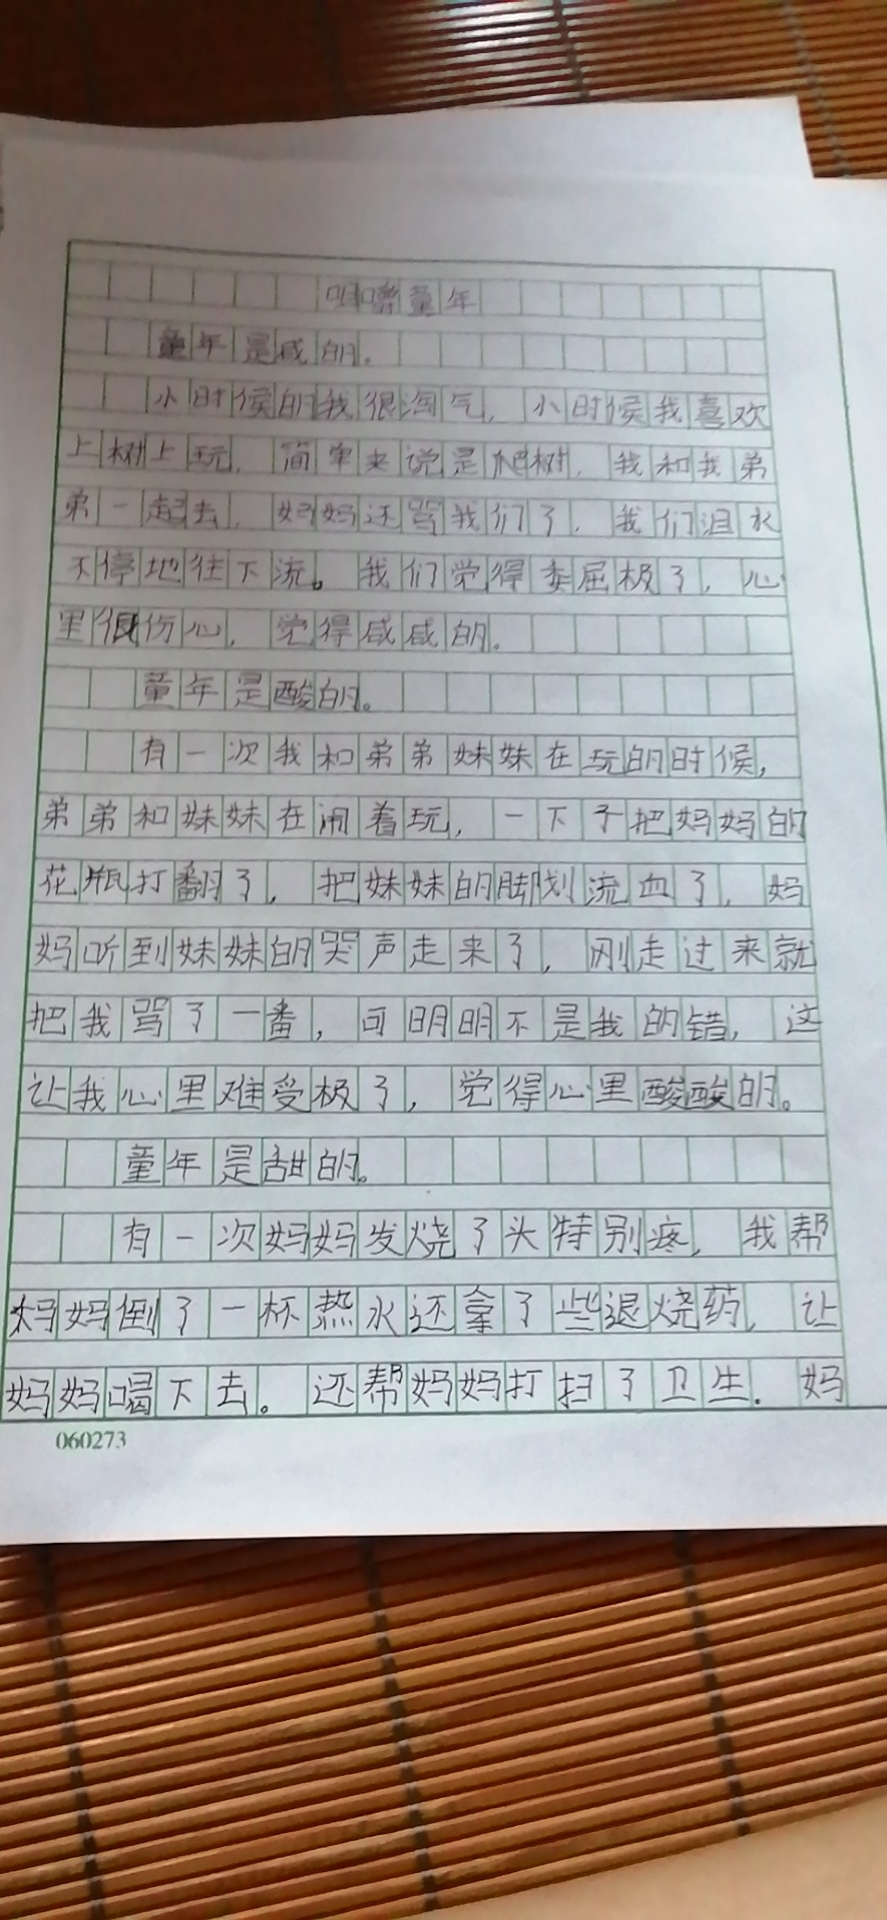 咀嚼童年
童年是咸的。
小时候的我很淘气，小时候我喜欢
上树上玩，简单来说是爬树，我和我弟
弟一起去，妈妈还骂我们了，我们泪水
不停地往下流。我们觉得委屈极了，心
里很伤心，觉得咸咸的。
童年是酸的。
有一次我和弟弟妹妹在玩的时候，
弟弟和妹妹在闹着玩，一下子把妈妈的
花瓶打翻了，把妹妹的脚划流血了，妈
妈听到妹妹的哭声走来了，刚走过来就
把我骂了一番，可明明不是我的错，这
让我心里难受极了，觉得心里酸酸的。
童年是甜的。
有一次妈妈发烧了头特别疼，我帮
妈妈倒了一杯热水还拿了些退烧药，让
妈妈喝下去。还帮妈妈打扫了卫生．妈
060273